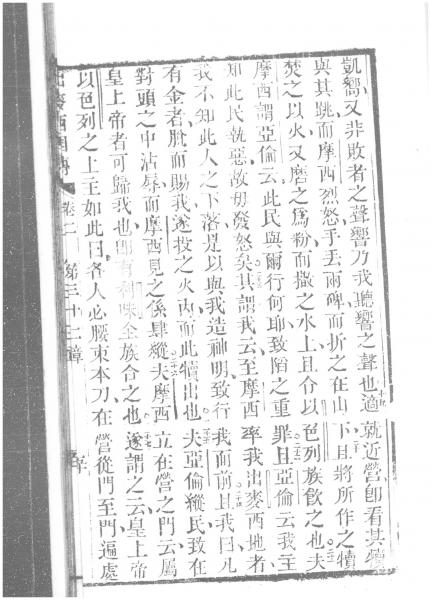 凱嚮又非敗者之聲響乃我聽響之聲也適就近營卽看其犢
與其跳而摩西烈怒手丟兩碑而折之在山下且將所作之犢
焚之以火又磨之為粉而撒之水上且令以色列族飲之也夫
摩西謂亞倫云此民與爾行何耶致陷之重罪且亞倫云我主
知此民執惡故毋發怒矣其謂我云至摩西率我出麥西地者
我不知此人之下落是以與我造神明致行我面前且我曰凡
有金者脫而賜我遂投之火內而此犢出也夫亞倫縱民致在
對頭之中沾辱而摩西見之係肆縱夫摩西立在營之門云屬
皇上帝者可歸我也卽有利味全族合之也遂謂之云皇上帝
以色列之上主如此曰各人必腰束本刀在營從門至門遍處
出麥西國傳 卷二 第三十二章